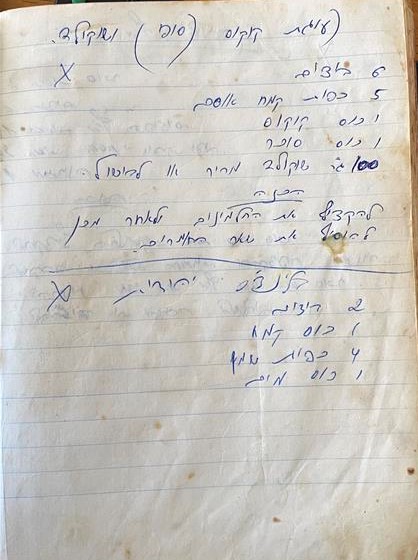 עוגת קוקוס (סופי) ושוקולד.
6 ביצים X
5 כפות קמח אוסם
1 כוס קוקוס
1 כוס סוכר
100 גר' שוקולד מריר או לבישול
הכנה
להקציף את החלמינים ולאחר מכן
להוסיף את שאר החומרים.
בלינצ'ס יהודית X
2 ביצים
1 כוס קמח
4 כפות שמן
1 כוס מים